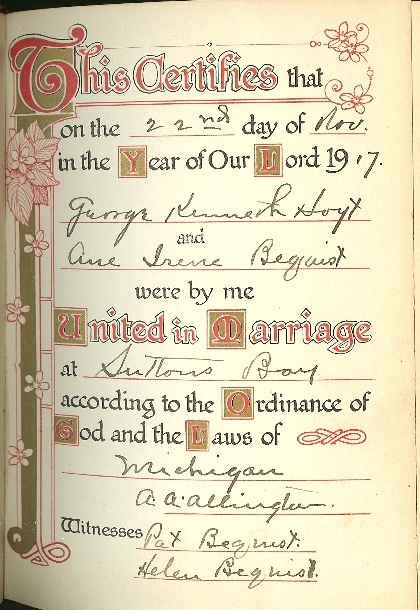 This Certifies that
on the 22nd day of Nov.
in the Year of Our Lord 1917.
George Kenneth Hoyt
and
Irene Bequist
were by me
United in Marriage
at Suttons Bay
according to the Ordinance of
God and the Laws of
Michigan
A. A. Allington.
Witnesses Pat Bequist.
Helen Bequist.